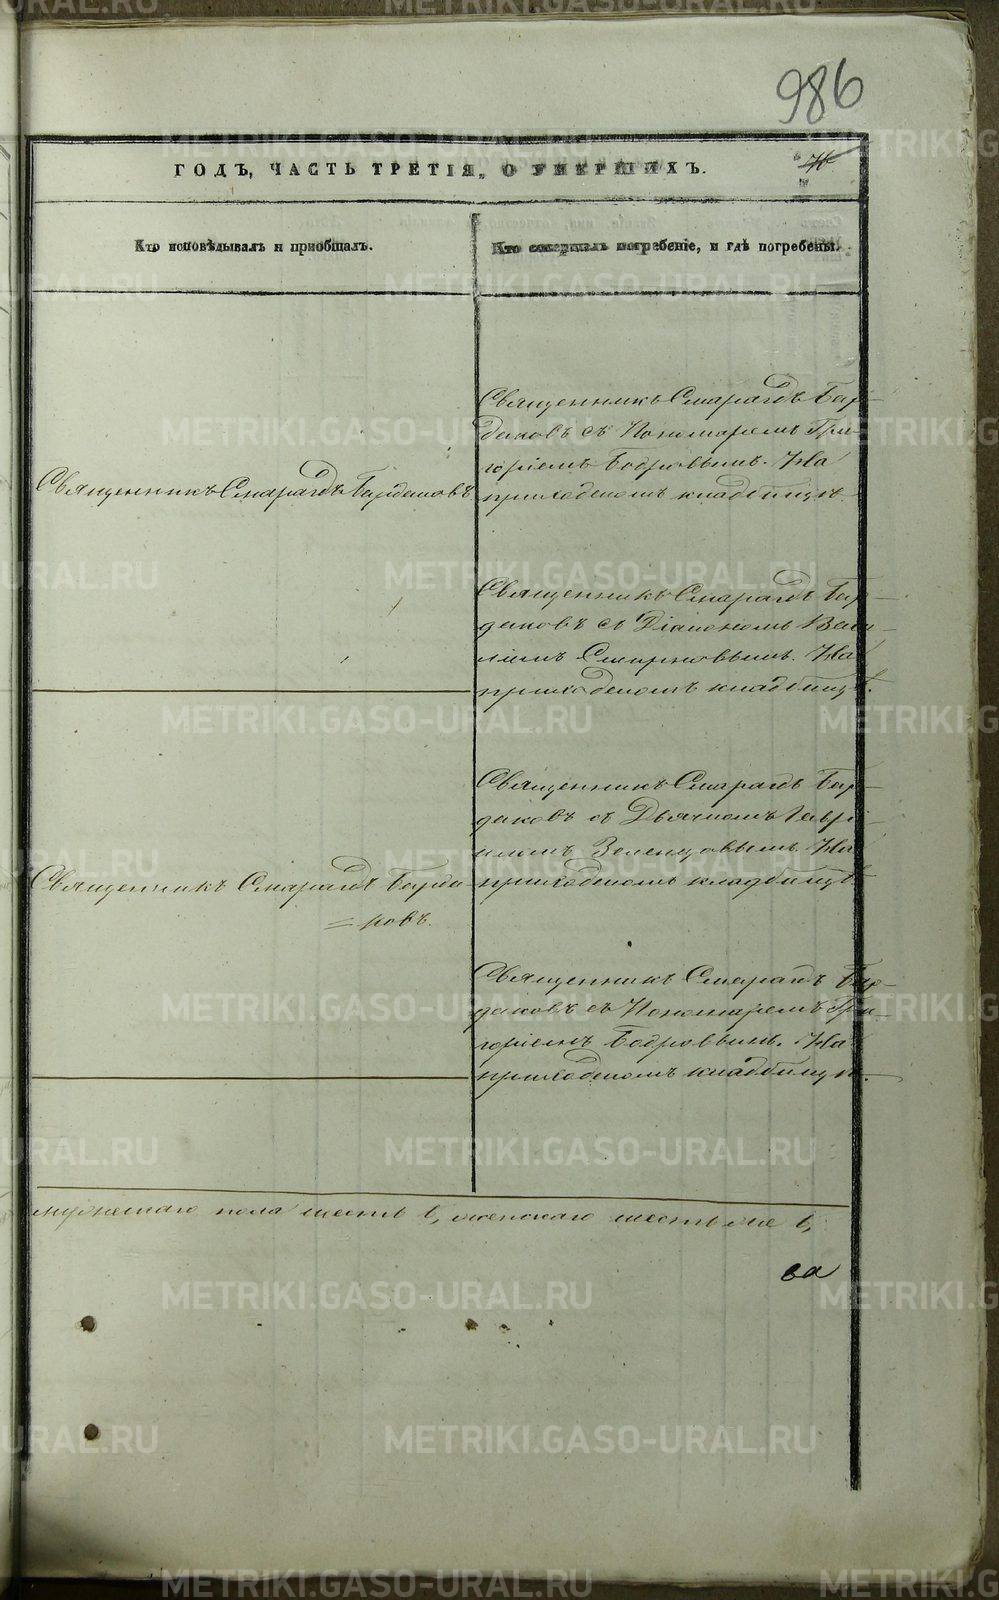 986
ГОДЪ, ЧАСТЬ ТРЕТІЯ, О УМЕРШИХЪ.
Кто исповѣдывалъ и пріобщалъ.
Кто совершалъ погребеніе, и гдѣ погребены.
Священникъ Смарагдъ Бардаковъ
Священникъ Смарагдъ Бар-
даковъ съ Пономаремъ Гри-
горіемъ Бобровымъ. На
приходскомъ кладбищѣ.
Священникъ Смарагдъ Бар-
даковъ съ Діакономъ Васи-
ліемъ Смирновымъ. На
приходскомъ кладбищѣ.
Священникъ Смарагдъ Барда
=ковъ.
Священникъ Смарагдъ Бар-
даковъ съ Дьячкомъ Гаврі-
иломъ Зеленцовымъ. На
приходскомъ кладбищѣ
Священникъ Смарагдъ Бар-
даковъ съ Пономаремъ Гри-
горіемъ Бобровымъ. На
приходскомъ кладбищѣ.
мужескаго пола шесть 6, женскаго шесть же 6,
ва
METRIKI.GASO-URAL.RU